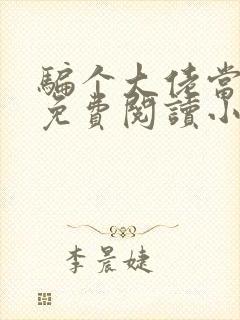 骗个大佬当
免費閱讀小
李晨婕